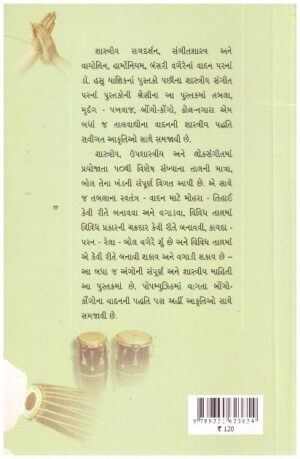 શાસ્ત્રીય રાગદર્શન, સંગીતશાસ્ત્ર અને
વાયોલિન, હાર્મોનિયમ, બંસરી વગેરેનાં વાદન પરનાં
ડૉ. હસુ યાજ્ઞિકનાં પુસ્તકો પછીના શાસ્ત્રીય સંગીત
પરનાં પુસ્તકોની શ્રેણીના આ પુસ્તકમાં તબલા,
મૃદંગ - પખવાજ, બોંગો-કોંગો, ઢોલ-નગારા એમ
બધાં જ તાલવાદ્યોના વાદનની શાસ્ત્રીય પદ્ધતિ
સવીગત આકૃતિઓ સાથે સમજાવી છે.
શાસ્ત્રીય, ઉપશાસ્ત્રીય અને લોકસંગીતમાં
પ્રયોજાતા ૫૦થી વિશેષ સંખ્યાના તાલની માત્રા,
બોલ તેના ખંડની સંપૂર્ણ વિગત આપી છે. એ સાથે
જ તબલાના સ્વતંત્ર - વાદન માટે મોહરા - તિહાઈ
કેવી રીતે બનાવવા અને વગાડવા, વિવિધ તાલમાં
વિવિધ પ્રકારની ચક્રદાર કેવી રીતે બનાવવી, કાયદા -
પરન - રેલા - બોલ વગેરે શું છે અને વિવિધ તાલમાં
એ કેવી રીતે બનાવી શકાય અને વગાડી શકાય છે –
આ બધા જ અંગોની સંપૂર્ણ અને શાસ્ત્રીય માહિતી
આ પુસ્તકમાં છે. પોપમ્યૂઝિકમાં વાગતા બોંગો-
કોંગોના વાદનની પદ્ધતિ પણ અહીં આકૃતિઓ સાથે
સમજાવી છે.
9789351625834
₹ 120